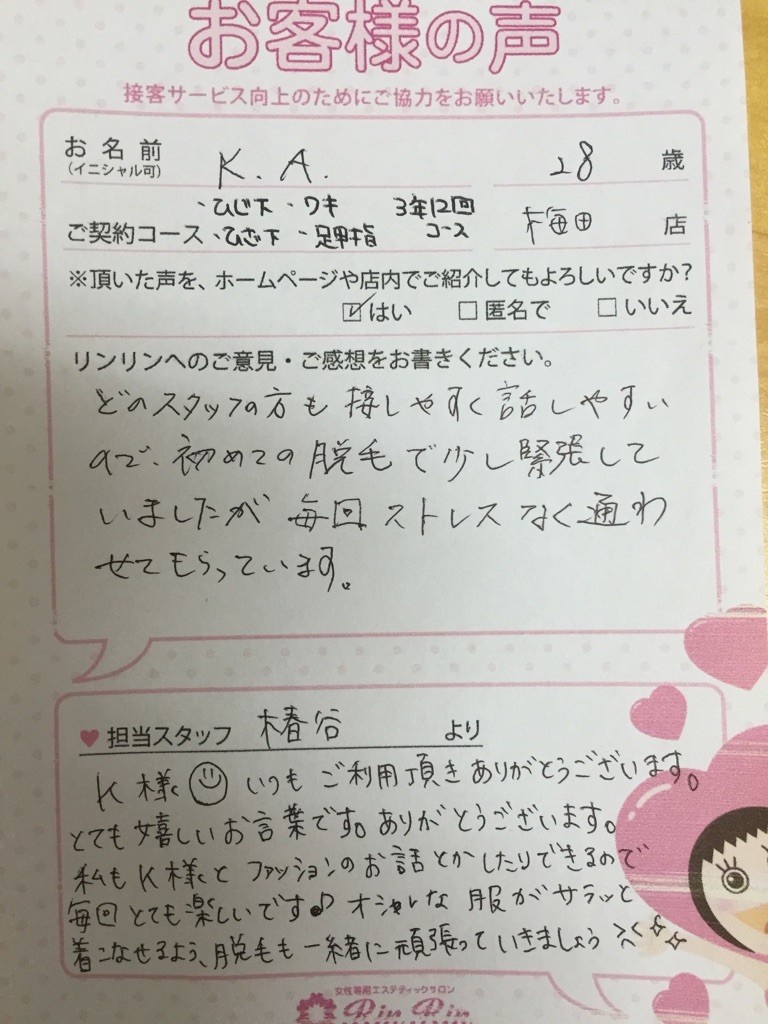 お客様の声
接客サービス向上のためにご協力をお願いいたします。
お名前 K.A. 28 歳
(イニシャル可)
・ひじ下 ・ワキ 3年12回
ご契約コース ・ひざ下 ・足甲指 コース 梅田 店
※頂いた声を、ホームページや店内でご紹介してもよろしいですか?
☑はい □匿名で □いいえ
リンリンへのご意見・ご感想をお書きください。
どのスタッフの方も接しやすく話しやすい
ので、初めての脱毛で少し緊張して
いましたが毎回ストレスなく通わ
せてもらっています。
♥担当スタッフ 椿谷 より
K様 いつもご利用頂きありがとうございます。
とても嬉しいお言葉です。ありがとうございます。
私もK様とファッションのお話とかしたりできるので
毎回とても楽しいです♪オシャレな服がサラッと
着こなせるよう、脱毛も一緒に頑張っていきましょう
女性専用エステティックサロン
Rin Rin